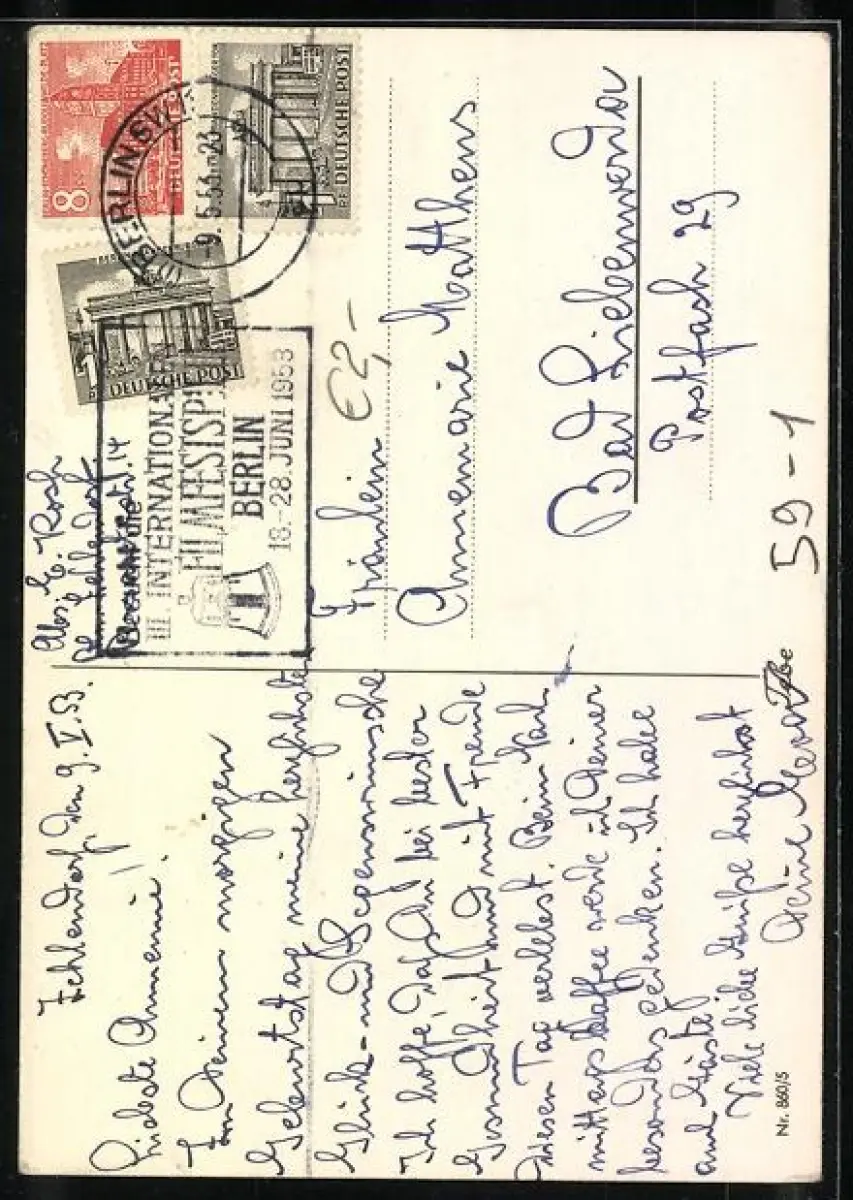 8
DEUTSCHE POST
1
PF
DEUTSCHE POST
1
PF
DEUTSCHE POST
BERLIN SW
-9.5.53-23
Besucht die
III. INTERNATIONALEN
FILMFESTSP.
BERLIN
18.-28. JUNI 1953
Abs. E. Koch
Zehlendorf
14
€2,-
Fräulein
Annemarie Matthens
Bad Liebenwerda
Postfach 29
59-1
Zehlendorf, den 9. V. 53.
Liebste Annemie!
Zu Deinem morgigen
Geburtstag meine herzlichsten
Glück- und Segenswünsche
Ich hoffe, daß Du bei bester
Gesundheit und mit Freude
diesen Tag verlebst. Beim Nach-
mittagskaffee werde ich Deiner
besonders gedenken. Ich habe
auch Gäste.
Viele liebe Grüße herzlichst
Deine
Nr. 860/5